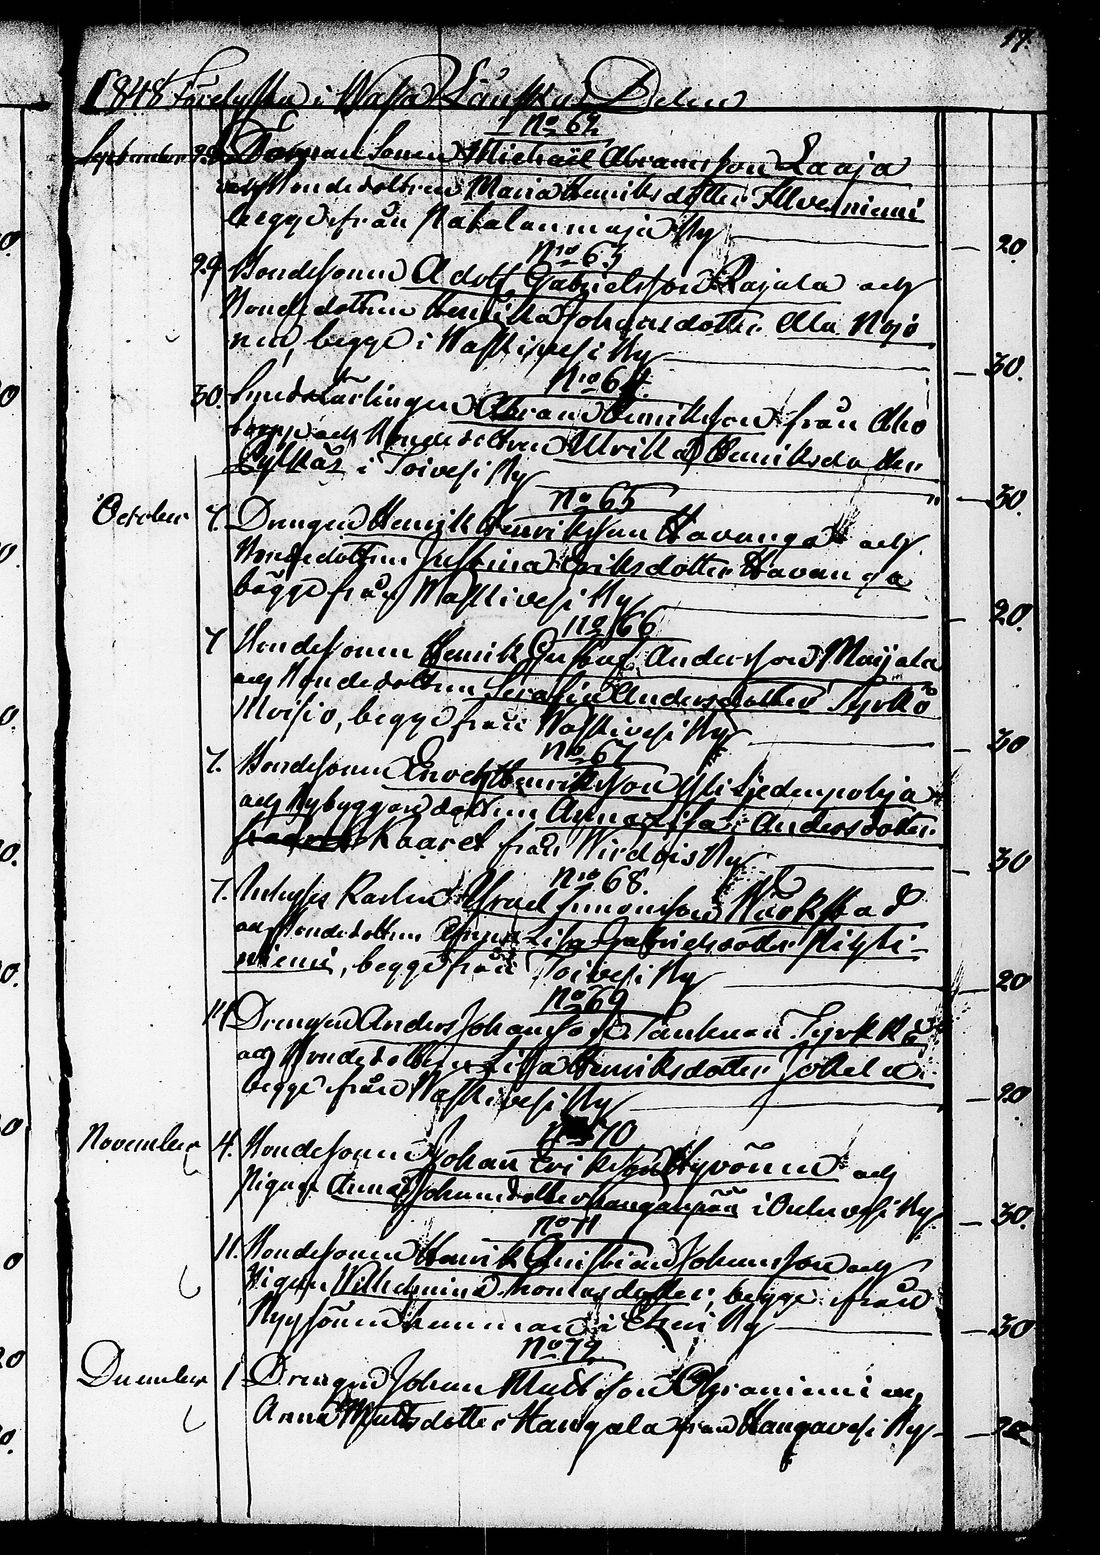 17.
1848 Förelysta i Wasa Länska Delen
No 62
September 29 Torparsonen Michaël Abramsson Laaja
och Bondedottren Maria Henriksdotter Illvesniemi
begge från By 20.
No 63
29. Bondesonen Adolf Gabrielsson Rajala och
Bondedottren Henrika Johansdotter Ala Röjö
nen, begge i Waskivesi By 30.
No 64.
30. Abram Henriksson från Aho
torpp och Bondedottren Ulrika Henriksdotter
i Toivesi By 30.
No 65
October 7. Drengen Henrik Henriksson Havanga och
Bondedottren Justina Eriksdotter Havanga
begge från Waskivesi By 20.
No 66
7 Bondesonen Henrik Gustaf Andersson Maijala
och Bondedottren Serafia Andersdotter Tyrkö
Moisio, begge från Waskivesi By 30
No 67
7. Bondesonen Enoch Henriksson Yli Sjedenpohja
och Nybyggaredottren Anna Lisa Andersdotter
Kaaret från Wirdois By 30
No 68.
7. Israel Simonsson
och Bondedottren Anna Lisa Gabrielsdotter Pihti-
niemi, begge från Toivesi By 20
No 69
14. Drengen Anders Johansson Tyrkkö
och Bondedottren Lisa Henriksdotter Jokela
begge från Waskivesi By 20
No 70
November 4. Bondesonen Johan Eriksson Hyvönen och
Pigan Anna Johansdotter Kanganpää i Ouluvesi By 30.
No 71
11. Bondesonen Henrik Christian Johansson och
Pigan Wilhelmina Thomasdotter, begge från
hemman i Etseri By 30
No 72
December 1 Drengen Johan Mattsson Ahraniemi och
Anna Mattsdotter Hangala från Hangavesi By 20.